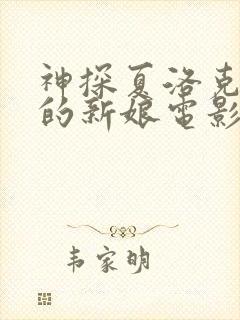 神探夏洛克
的新娘电影
韦家明